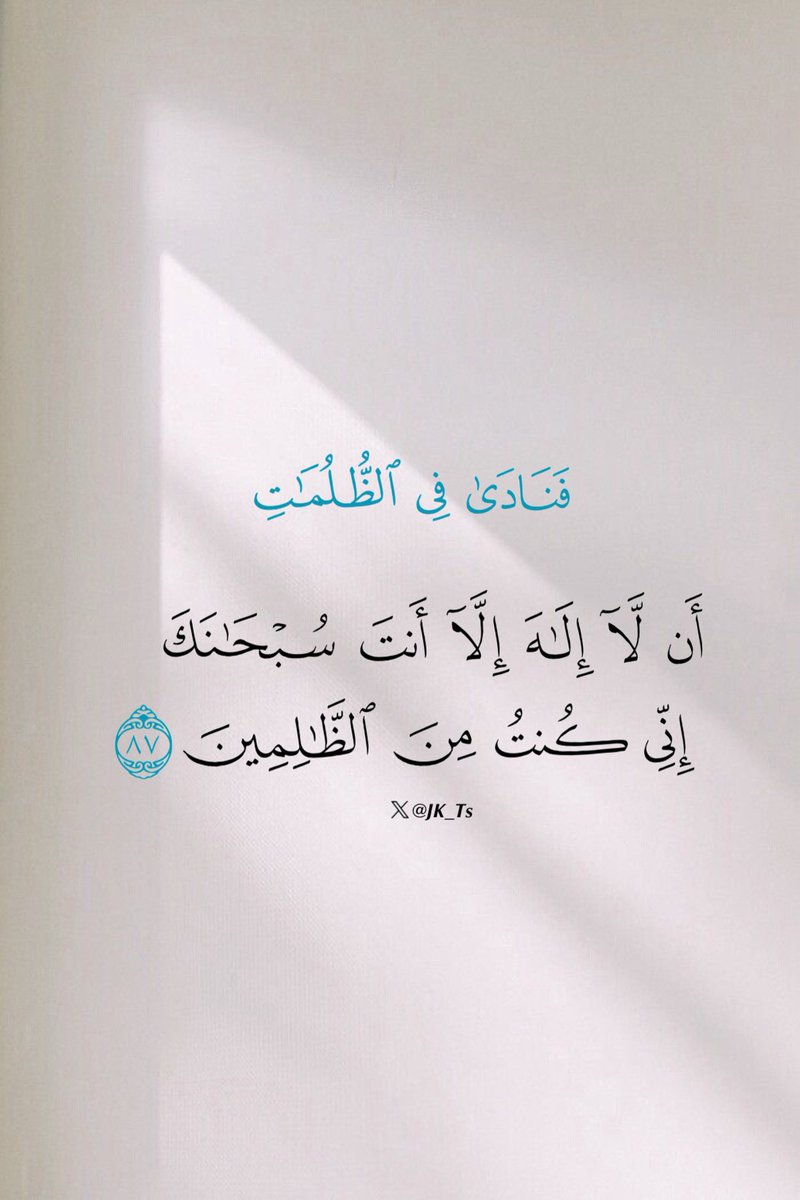 فَنَادَىٰ فِي ٱلظُّلُمَٰتِ
أَن لَّآ إِلَٰهَ إِلَّآ أَنتَ سُبْحَٰنَكَ
إِنِّي كُنتُ مِنَ ٱلظَّٰلِمِينَ ٨٧
𝕏 @JK_Ts